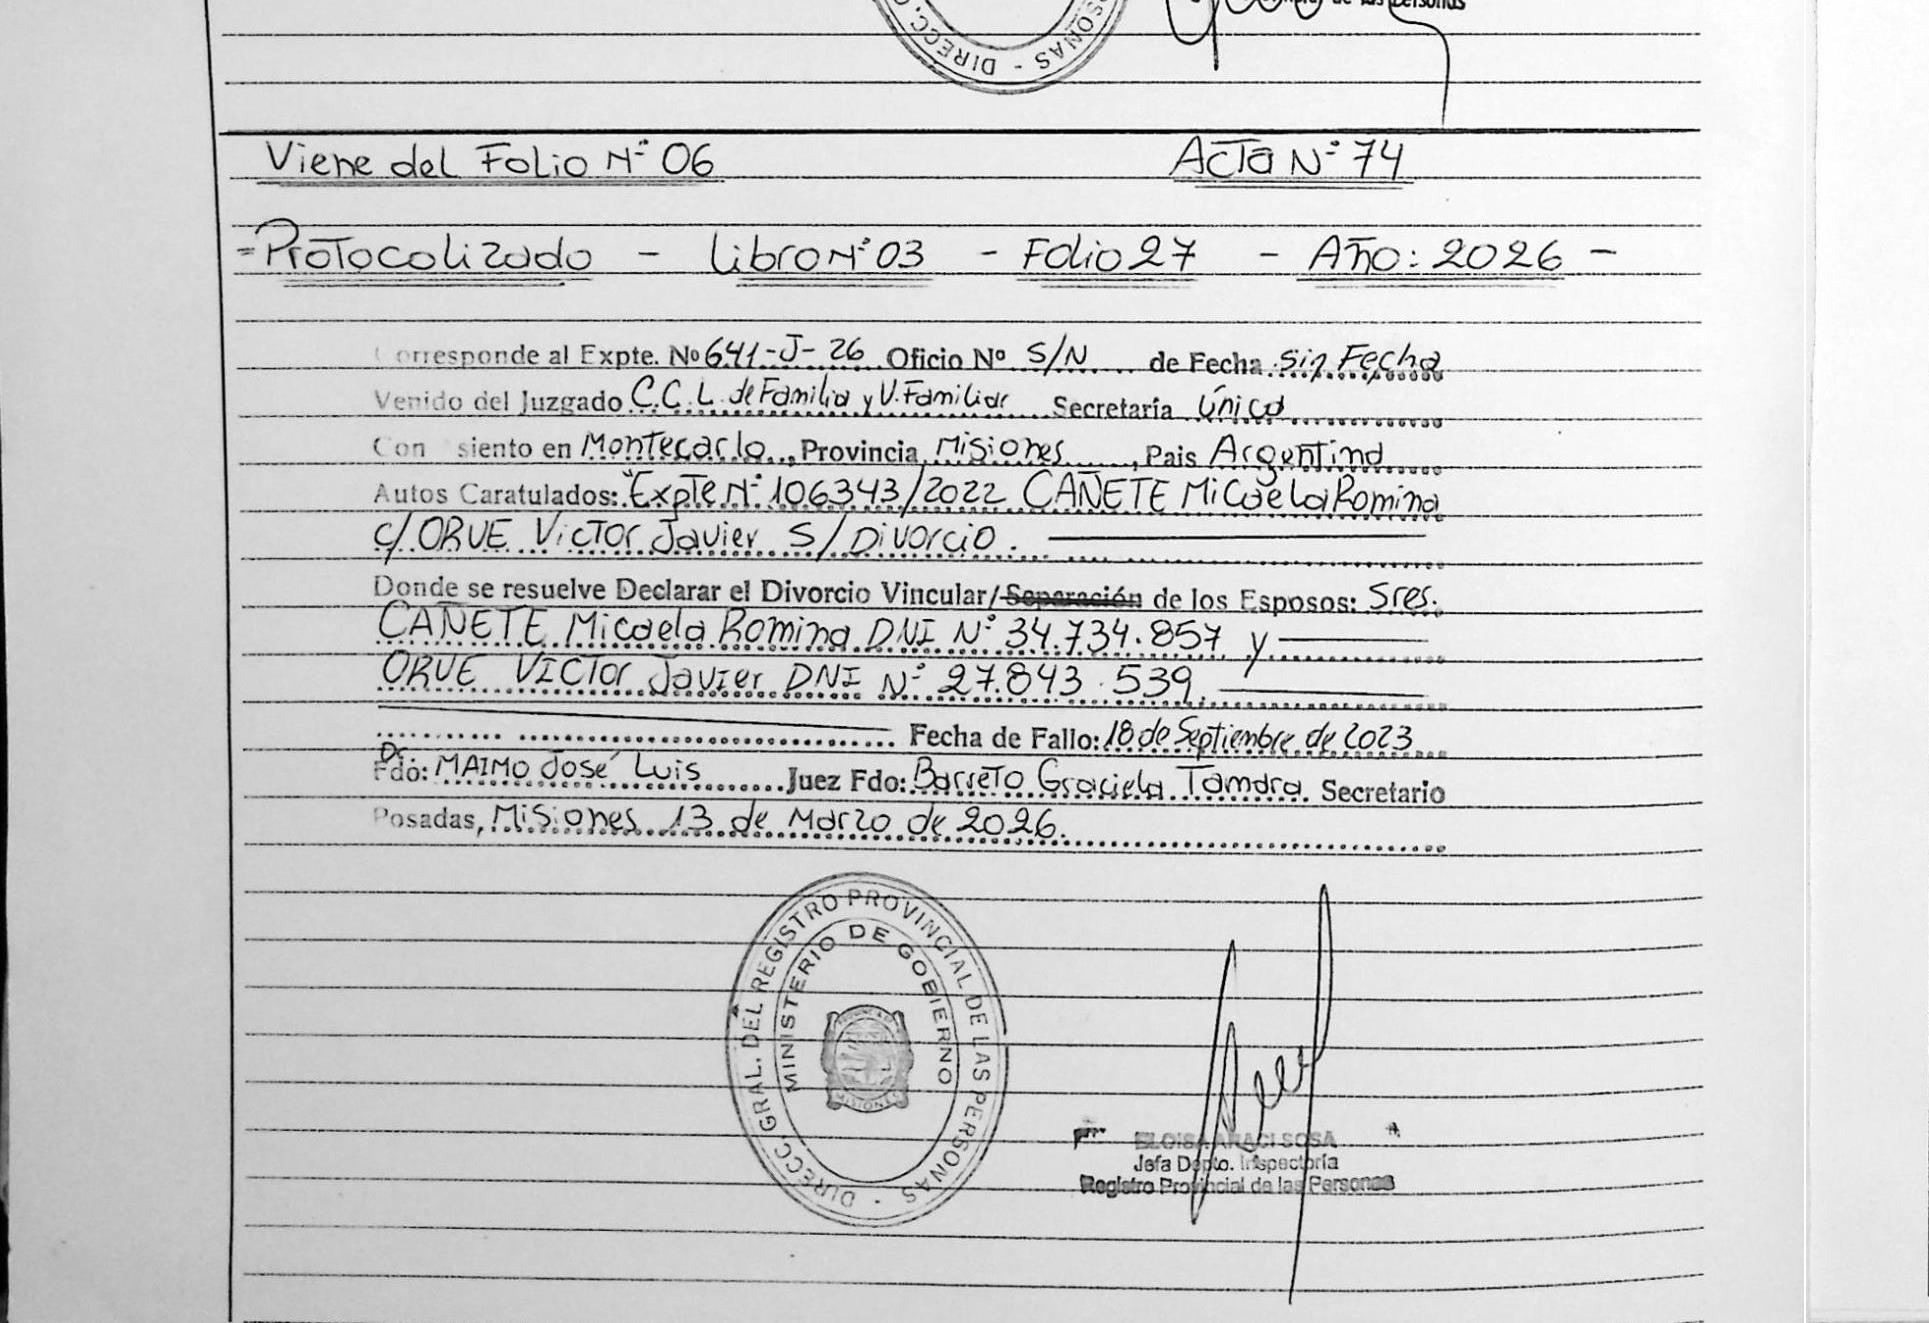 de las Personas
DIRECC. SONAS -
Viene del Folio N° 06 Acta N° 74
= Protocolizado - Libro N° 03 - Folio 27 - Año: 2026 -
Corresponde al Expte. Nº 641-J-26 Oficio Nº S/N de Fecha sin Fecha
Venido del Juzgado C.C.L. de Familia y V. Familiar Secretaría Única
Con siento en Montecarlo, Provincia Misiones, Pais Argentina
Autos Caratulados: "Expte N° 106343/2022 CAÑETE Micaela Romina
c/ ORUE Victor Javier S/ Divorcio.
Donde se resuelve Declarar el Divorcio Vincular/Separación de los Esposos: Sres.
CAÑETE Micaela Romina DNI N° 34.734.857 y
ORUE Victor Javier DNI N° 27.843.539.
Fecha de Fallo: 18 de Septiembre de 2023
Dr.
Fdo: MAIMO José Luis Juez Fdo: Barreto Graciela Tamara. Secretario
Posadas, Misiones 13 de Marzo de 2026.
DIRECC. GRAL. DEL REGISTRO PROVINCIAL DE LAS PERSONAS -
MINISTERIO DE GOBIERNO
MISIONES
ELOISA ARACI SOSA
Jefa Depto. Inspectoría
Registro Provincial de las Personas